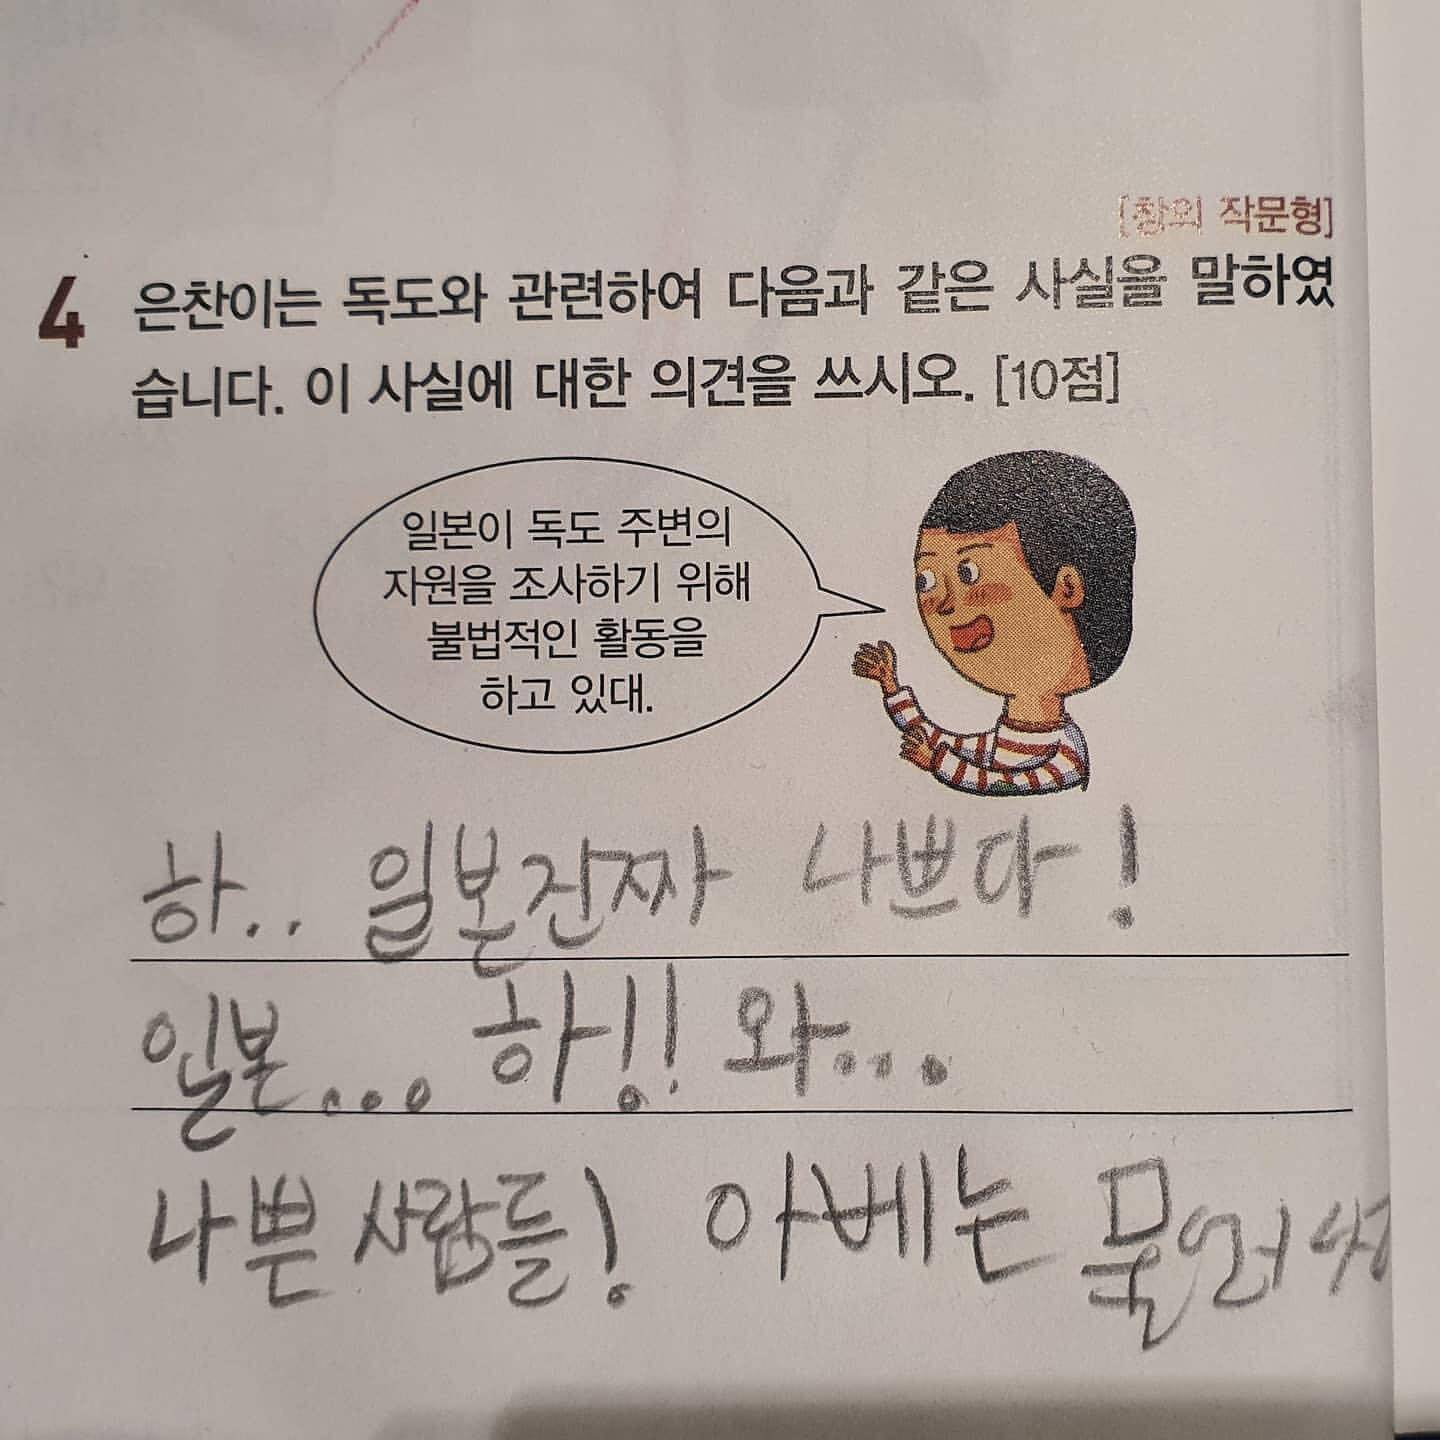 [창의 작문형]
4 은찬이는 독도와 관련하여 다음과 같은 사실을 말하였
습니다. 이 사실에 대한 의견을 쓰시오. [10점]
일본이 독도 주변의
자원을 조사하기 위해
불법적인 활동을
하고 있대.
하.. 일본진짜 나쁘다!
일본... 하!! 와...
나쁜 사람들! 아베는 물러